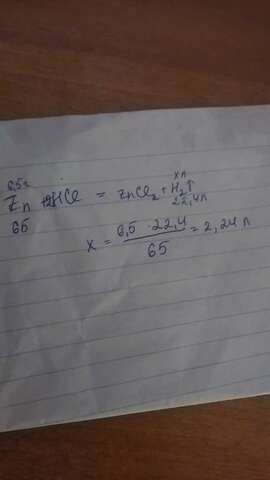 6,5г xл
Zn + 2HCl = ZnCl₂ + H₂↑
65 22,4л
x = 6,5 · 22,4 / 65 = 2,24 л